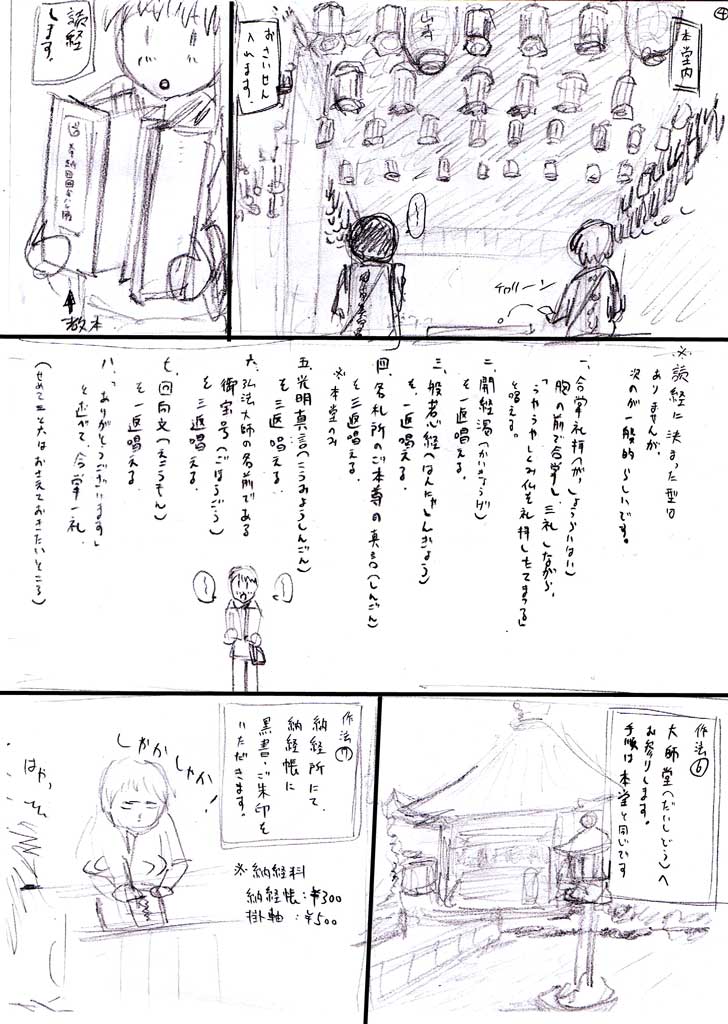 ④
本堂内
おさいせん
入れます。
チャリーン
読経
します。
奉納四国八十八
教本
※読経に決まった型は
ありませんが、
次のが一般的らしいです。
一、合掌礼拝(がっしょうらいはい)
胸の前で合掌し三礼しながら、
「うやうやしくみ仏を礼拝したてまつる」
と唱える。
二、開経偈(かいきょうげ)
を一返唱える。
三、般若心経(はんにゃしんぎょう)
を、一返唱える。
四、各札所のご本尊の真言(しんごん)
を三返唱える。
※本堂のみ
五、光明真言(こうみょうしんごん)
を三返唱える。
六、弘法大師の名前である
御宝号(ごほうごう)
を三返唱える。
七、回向文(えこうもん)
を一返唱える。
八、「ありがとうございます」
と述べて、合掌一礼。
(せめて三と六はおさえておきたいところ)
作法⑥
大師堂(だいしどう)へ
お参りします。
手順は本堂と同じです
作法⑦
納経所にて、
納経帳に
墨書・ご朱印を
いただきます。
しゃかしゃか
はやっ
※納経料
納経帳:¥300
掛軸:¥500